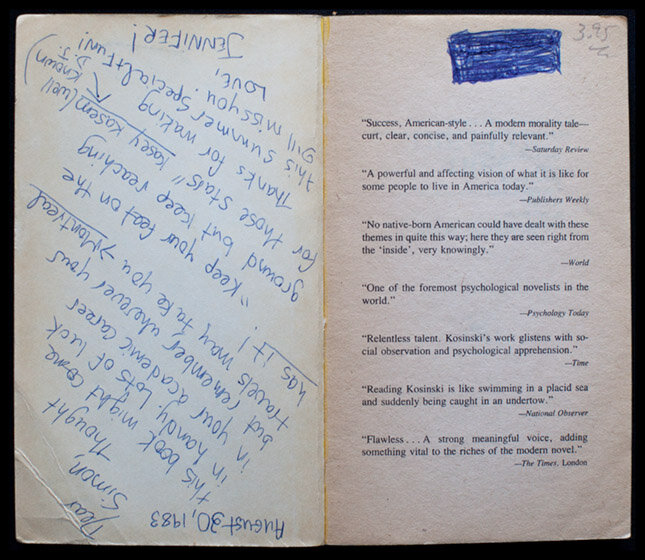 August 30, 1983
Dear
Simon,
thought
this book might come
in handy. Lots of luck
in your academic career
but remember wherever your
travels may take you, → Montreal
has it!
"Keep your feet on the
ground but keep reaching
for those stars" Kasey Kasem (well
known
D.J.)
Thanks for making
this summer special + fun!
I'll miss you.
LOVE,
JENNIFER!
3.95
“Success, American-style . . . A modern morality tale—
curt, clear, concise, and painfully relevant.”
—Saturday Review
“A powerful and affecting vision of what it is like for
some people to live in America today.”
—Publishers Weekly
“No native-born American could have dealt with these
themes in quite this way; here they are seen right from
the ‘inside’, very knowingly.”
—World
“One of the foremost psychological novelists in the
world.”
—Psychology Today
“Relentless talent. Kosinski’s work glistens with so-
cial observation and psychological apprehension.”
—Time
“Reading Kosinski is like swimming in a placid sea
and suddenly being caught in an undertow.”
—National Observer
“Flawless . . . A strong meaningful voice, adding
something vital to the riches of the modern novel.”
—The Times, London